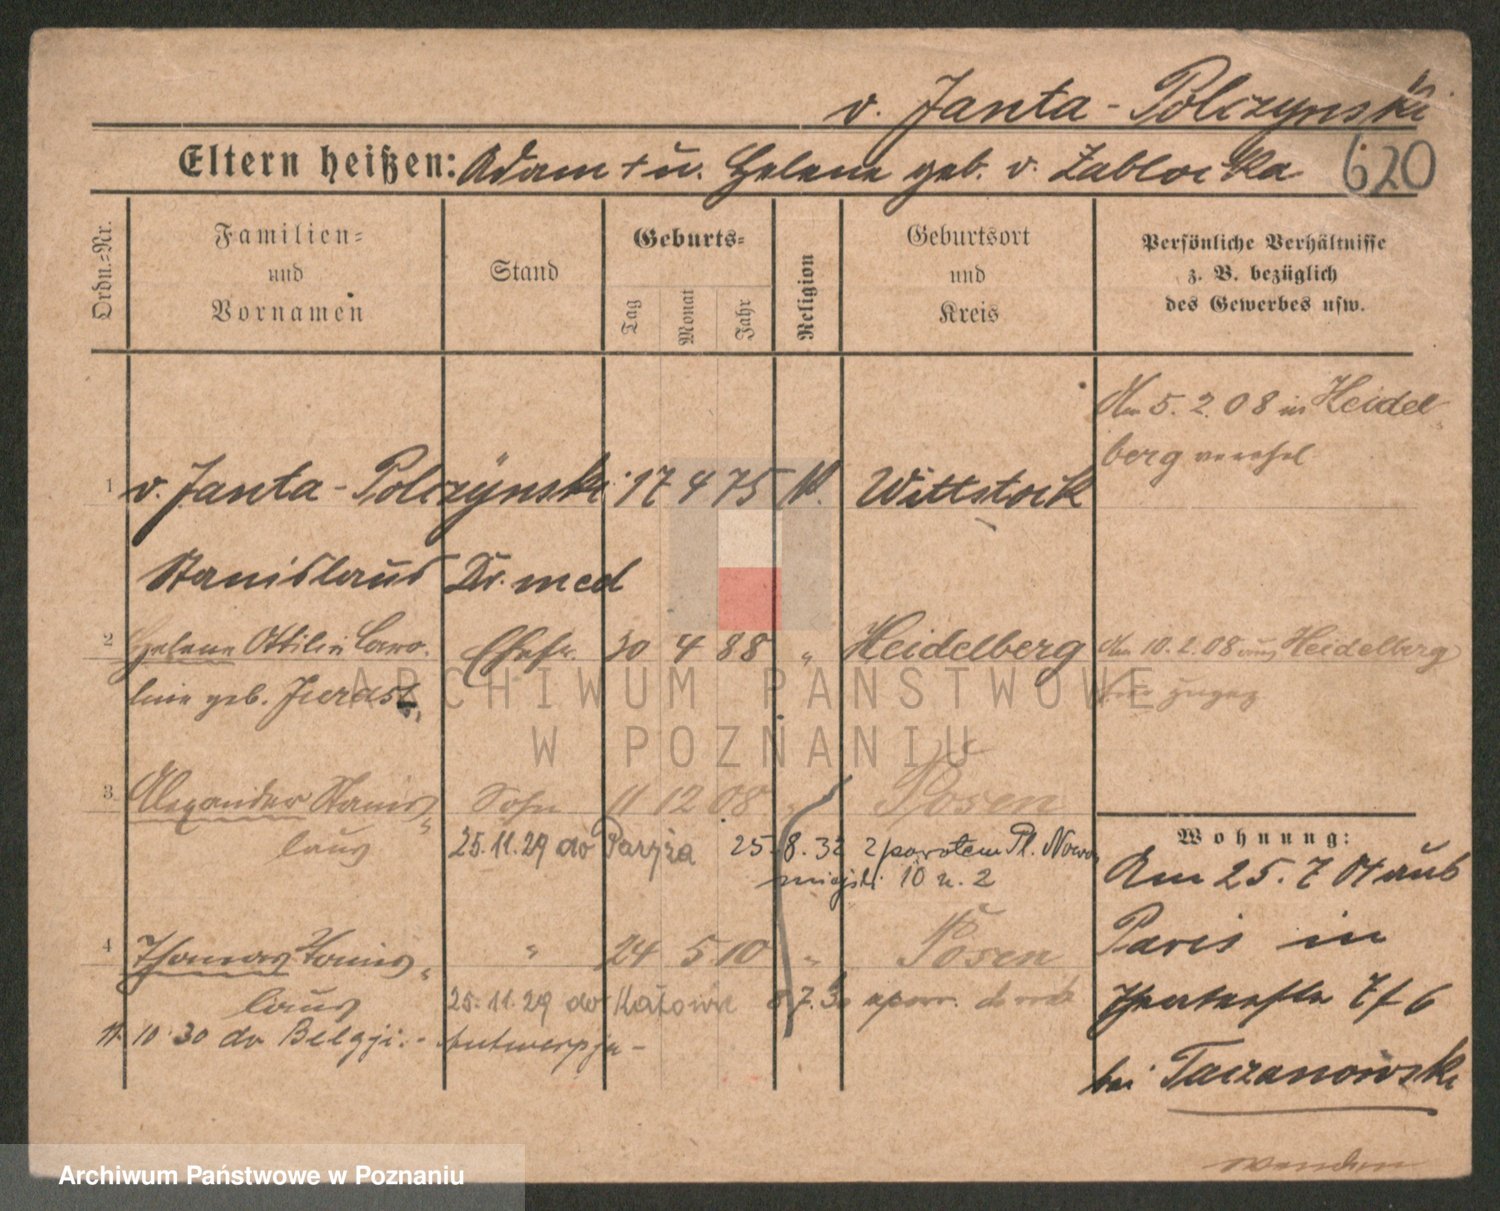 v. Janta-Polczynski
Eltern heißen: Adam † u. Helene geb. v. Zablocka 620
Ordn.-Nr.
Familien-
und
Vornamen
Stand
Geburts-
Tag
Monat
Jahr
Religion
Geburtsort
und
Kreis
Persönliche Verhältnisse
z. B. bezüglich
des Gewerbes usw.
Am 5. 2. 08 in Heidel
berg verehel
1 v. Janta-Polczynski 17 4 75 K. Wittstock
Stanislaus Dr. med
2 Helene Ottilie Caro- Ehefr. 30 4 88 " Heidelberg Am 10. 2. 08 aus Heidelberg
line geb. Jurasz
3 Alexander Stanis- Sohn 11 12 08 " Posen
laus 25.11.29 do Paryża 25.8.32 z powrotem Pl. Nowo
miejski 10 u. 2
Wohnung:
Am 25. 7 04 aus
Paris in
4 Thomas Stanis- " 24 5 10 " Posen
laus 25.11.29 do Katowic
11.10.30 do Belgji - Antwerpja -
7f 6
bei Taczanowski
wenden
ARCHIWUM PAŃSTWOWE
W POZNANIU
Archiwum Państwowe w Poznaniu